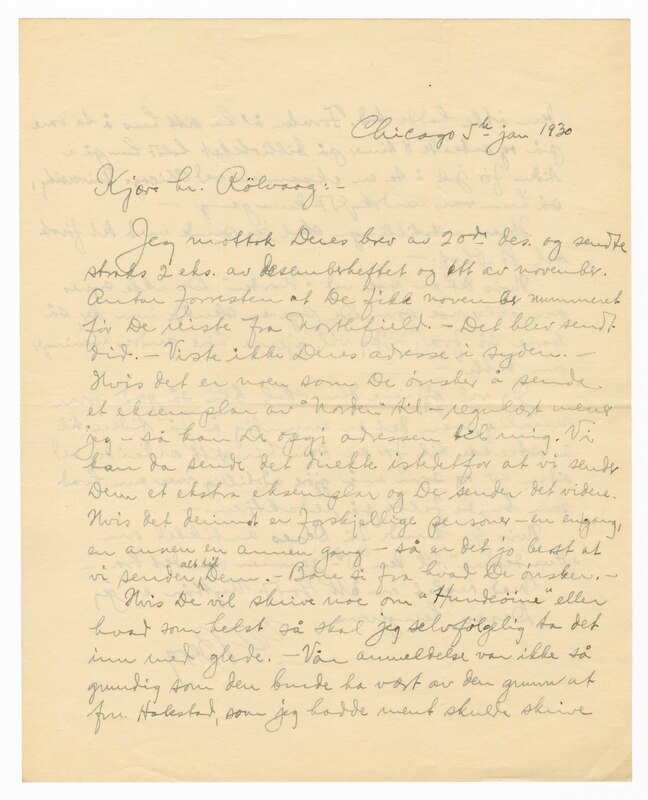 Chicago 5th jan 1930
Kjære hr. Rölvaag:-
Jeg mottok Deres brev av 20de des. og sendte
straks 2 eks. av desemberheftet og ett av november.
Antar forresten at De fikk november nummeret
før De reiste fra Northfield. - Det blev sendt
did. - Visste ikke Deres adresse i syden. -
Hvis det er noen som De ønsker å sende
et eksemplar av "Norden" til - regulært mener
jeg - så kan De opgi adressen til mig. Vi
kan da sende det direkte istedetfor at vi sender
Dem et ekstra eksemplar og De sender det videre.
Hvis det derimot er forskjellige personer - en engang,
en annen en annen gang - så er det jo best at
vi sender alt til Dem. - Bare si fra hvad De ønsker. -
Hvis De vil skrive noe om "Hundeöine" eller
hvad som helst så skal jeg selvfölgelig ta det
inn med glede. - Vår anmeldelse var ikke så
grundig som den burde ha vært av den grunn at
frk. Hakstad, som jeg hadde ment skulde skrive